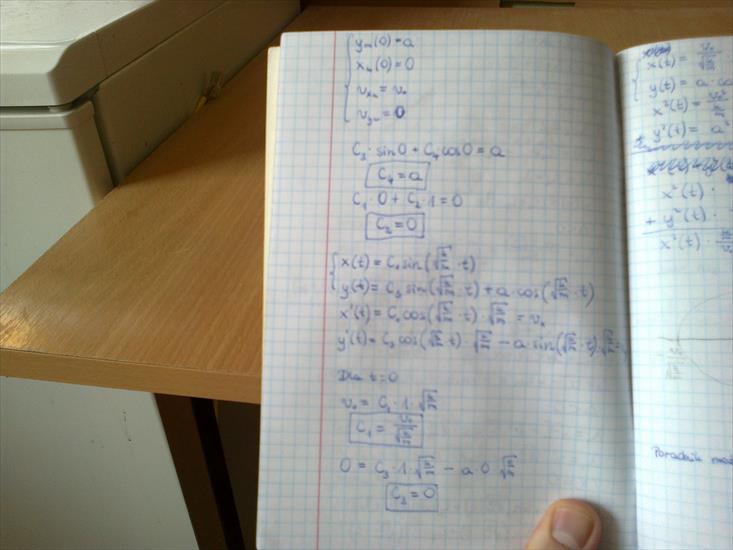 y_m(0)=a
x_m(0)=0
v_xm = v₀
v_ym = 0
C₃·sin0 + C₄cos0 = a
C₄ = a
C₁·0 + C₂·1 = 0
C₂ = 0
x(t) = C₁sin(√(k/m)·t)
y(t) = C₃sin(√(k/m)·t) + a·cos(√(k/m)·t)
x'(t) = C₁cos(√(k/m)·t)·√(k/m) = v₀
y'(t) = C₃cos(√(k/m)·t)·√(k/m) − a·sin(√(k/m)·t)·√(k/m) =
Dla t=0
v₀ = C₁·1·√(k/m)
C₁ = v₀/√(k/m)
0 = C₃·1·√(k/m) − a·0·√(k/m)
C₃ = 0
x(t) = v₀/√(k/m)
y(t) = a·cos
x²(t) = v₀²/(k/m)
y²(t) = a²
x²(t) ·
+ y²(t) ·
x²(t) ·